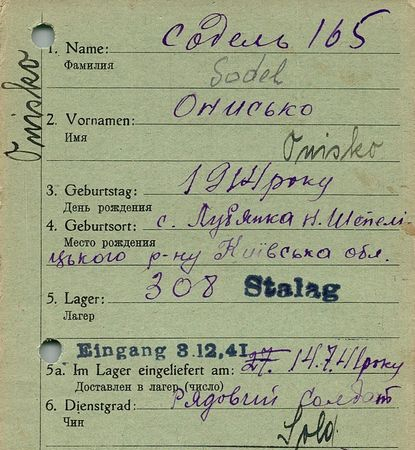 1. Name: Содель 165
Фамилия
Sodel
Onisko
2. Vornamen: Онисько
Имя
Onisko
3. Geburtstag: 1914 року
День рождения
4. Geburtsort: с. Лубянка Н. Шепелі
Место рождения
цького р-ну Київська обл.
5. Lager: 308 Stalag
Лагерь
Eingang 3.12.41
5a. Im Lager eingeliefert am: 27. 14.7.41 року
Доставлен в лагерь (число)
6. Dienstgrad: Рядовий солдат
Чин
Sold.